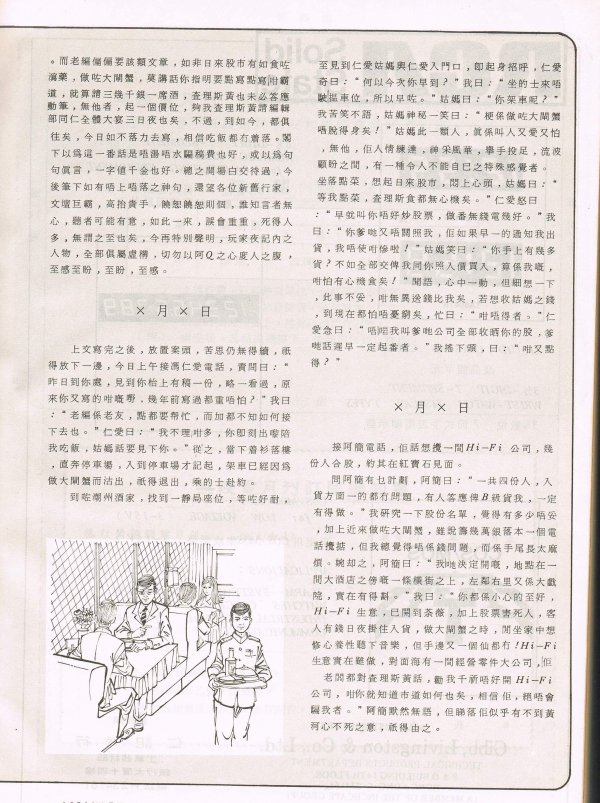 。而老編偏偏要該類文章，如非日來股市有如食咗
瀉藥，做咗大閘蟹，莫講話你指明要點寫點寫咁霸
道，就算請三幾千銀一席酒，查理斯黃也未必答應
動筆，無他者，起一個價位，夠我查理斯黃請編輯
部同仁全體大宴三日夜也矣，不過，到如今，都俱
往矣，今日如不落力去寫，相信吃飯都冇着落。閣
下以爲這一番話是唔湯唔水騙稿費也好，或以爲句
句眞言，一字値千金也好。總之開場白交待過，今
後筆下如有唔上唔落之神句，還望各位新舊行家，
文壇巨霸，高抬貴手，饒恕饒恕則個，誰知言者無
心，聽者可能有意，如此一來，誤會重重，死得人
多，無謂之至也矣，今再特別聲明，玩家夜記內之
人物，全部俱屬虛構，切勿以阿Q之心度人之腹，
至感至盼，至盼，至感。
×月×日
上文寫完之後，放置案頭，苦思仍無得續，祇
得放下一邊，今日上午接馮仁愛電話，賣問曰：“
昨日到你處，見到你枱上有稿一份，略一看過，原
來你又寫的咁嘅嘢，幾年前寫過都重唔怕？”我曰
：“老編係老友，點都要帮忙，而加都不知如何接
下去也。”仁愛曰：“我不理咁多，你即刻出嚟陪
我吃飯，姑媽話要見下你。”從之，當下着衫落樓
，直奔停車場，入到停車場才記起，架車已經因爲
做大閘蟹而沽出，祇得退出，乘的士赴約。
到咗潮州酒家，找到一靜局座位，等咗好耐，
至見到仁愛姑媽與仁愛入門口，卽起身招呼，仁愛
奇曰：“何以今次你早到？”我曰：“坐的士來唔
駛搵車位，所以早咗。”姑媽曰：“你架車呢？”
我苦笑不語，姑媽神秘一笑曰：“梗係做咗大閘蟹
唔脫得身矣！”姑媽此一類人，眞係叫人又愛又怕
，無他，佢人情練達，神采風華，舉手投足，流波
顧盼之間，有一種令人不能自已之特殊感覺者。
坐落點菜，想起日來股市，悶上心頭，姑媽曰：“
等我點菜，查理斯食都無心機矣。”仁愛怒曰
：“早就叫你唔好炒股票，做番無綫電幾好。”我
曰：“你爹哋又唔關照我，佢如果早一的通知我出
貨，我唔使咁慘啦！”姑媽笑曰：“你手上有幾多
貨？不如全部交俾我同你照人價買入，算係我嘅，
咁怕有心機食矣！”聞語，心中一動，但細想一下
，此事不妥，咁無異送錢比我矣，若想收姑媽之錢
，到現在都怕唔憂窮矣，忙曰：“咁唔得者。”仁
愛急曰：“唔啱我叫爹哋公司全部收晒你的股，爹
哋話遲早一定起番者。”我搖下頭，曰：“咁又點
得？”
×月×日
接阿簡電話，佢話想攪一間Hi-Fi 公司，幾
份人合股，約其在紅寶石見面。
問阿簡有乜計劃，阿簡曰：“一共四份人，入
貨方面一的都冇問題，有人答應俾B級貨我，一定
有得做。”我研究一下股份名單，覺得有多少唔妥
，加上近來做咗大閘蟹，雖說籌幾萬銀落本一個電
話攪掂，但我總覺得唔係錢問題，而係手尾長太麻
煩。婉却之，阿簡曰：“我哋決定開嘅，地點在一
間大酒店之傍嘅一條橫街之上，左鄰右里又係大戲
院，實在有得斟。”我曰：“你都係小心的至好，
Hi-Fi 生意，已開到荼薇，加上股票害死人，客
人有錢日夜掛住入貨，做大閘蟹之時，閒坐家中想
修心養性聽下音樂，但手邊又一個仙都冇！Hi-Fi
生意實在難做，對面海有一間經營零件大公司，佢
老闆都對查理斯黃話，勸我千祈唔好開Hi-Fi
公司，咁你就知道市道如何也矣，相信佢，絕唔會
騙我者。”阿簡默然無語，但睇落佢似乎有不到黃
河心不死之意，祇得由之。